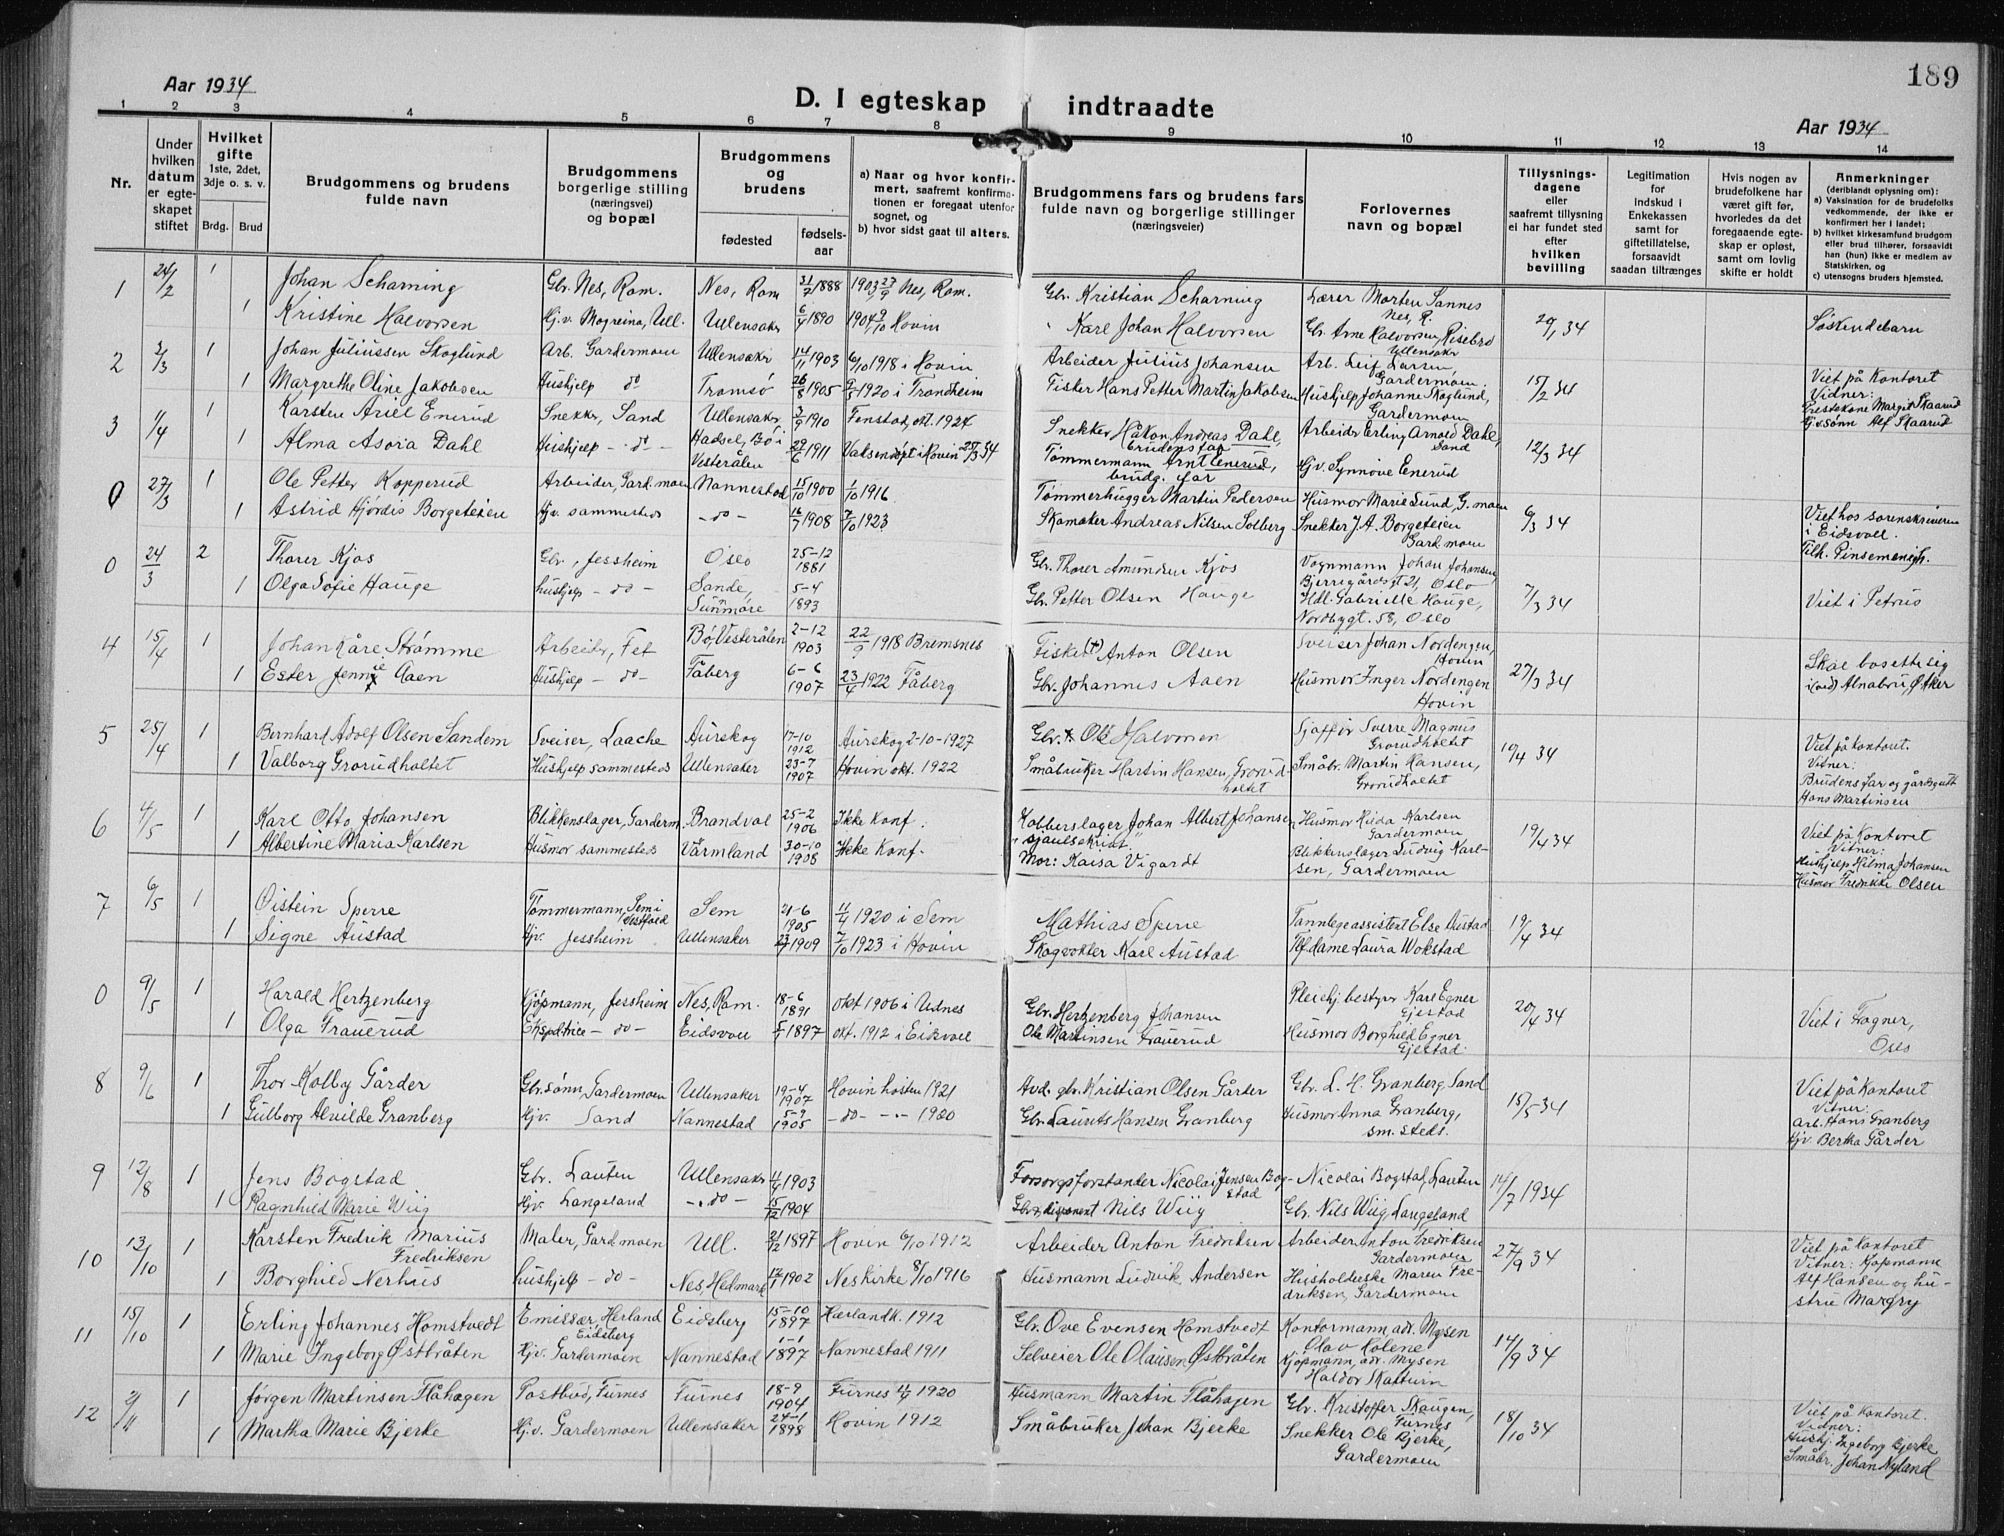 189
Aar 1934
D. I egteskap indtraadte
Aar 1934
1 2 3 4 5 6 7 8 9 10 11 12 13 14
Nr.
Under hvilken datum er egteskapet stiftet
Hvilket gifte
1ste, 2det, 3dje o. s. v.
Brdg. Brud
Brudgommens og brudens fulde navn
Brudgommens borgerlige stilling (næringsvei) og bopæl
Brudgommens og brudens
fødested fødselsaar
a) Naar og hvor konfirmert, saafremt konfirmationen er foregaat utenfor sognet, og
b) hvor sidst gaat til alters.
Brudgommens fars og brudens fars fulde navn og borgerlige stillinger (næringsveier)
Forlovernes navn og bopæl
Tillysningsdagene eller saafremt tillysning ei har fundet sted efter hvilken bevilling
Legitimation for indskud i Enkekassen samt for giftetillatelse, forsaavidt saadan tiltrænges
Hvis nogen av brudefolkene har været gift før, hvorledes da det foregaaende egteskap er opløst, samt om lovlig skifte er holdt
Anmerkninger (deriblandt oplysning om):
a) Vaksination for de brudefolks vedkommende, der ikke er konfirmert her i landet;
b) hvilket kirkesamfund brudgom eller brud tilhører, forsaavidt han (hun) ikke er medlem av Statskirken, og
c) utensogns bruders hjemsted.
1 24/2 1 Johan Scharning Gbr. Nes, Rom. Nes, Rom 31/7 1888 1903 27/9 Nes, Rom. Gbr. Kristian Scharning Lærer Morten Sannes Nes, R.
1 Kristine Halvorsen Hj.v. Mogreina, Ull. Ullensaker 6/4 1890 1904 9/10 Hovin Karl Johan Halvorsen Gbr. Arne Halvorsen, Risebro Ullensakr 20/1 34 Søskendebarn
2 3/3 1 Johan Juliussen Skoglund Arb. Gardermoen Ullensakr 14/11 1903 6/10 1918 i Hovin Arbeider Julius Johansen Arb. Leif Larsen, Gardermoen;
1 Margrethe Oline Jakobsen Hushjelp do Tromsø 26/8 1905 9/5 1920 i Trondheim Fisker Hans Petter Martin Jakobsen Hushjelp Johanne Skoglund, Gardermoen 15/2 34 Viet på Kontoret Vidner: Prestekone Margit Skaarud Gj.v.sønn Alf Skaarud
3 1/4 1 Karsten Ariel Enerud Snekker, Sand Ullensaker 3/9 1910 Fenstad, okt. 1924 Snekker Håkon Andreas Dahl, brudens far Arbeider Erling Arnold Dahl, Sand
1 Alma Asora Dahl Hushjelp - do - Hadsel, Bø i Vesterålen 29/6 1911 Voksendøpt i Hovin 25/3 34 Tømmermann Arnt Enerud, brudg. far Hjv. Synnøve Enerud 12/3 34
0 27/3 1 Ole Petter Kopperud Arbeider, Gard.moen Nannestad 15/10 1900 1/10 1916 Tømmerhugger Martin Pedersen Husmor Marie Lund, G.moen
1 Astrid Hjørdis Borgeteien Hjv. sammesteds - do - 16/7 1908 7/10 1923 Skomaker Andreas Nilsen Solberg Snekker J.A. Borgeteien Gard.moen 6/3 34 Viet hos sorenskriveren i Eidsvoll. Tilh. Pinsemenigh.
0 24/3 2 Thorer Kjos Gbr., Jessheim Oslo 25-12 1881 Gbr. Thorer Amundsen Kjos Vognmann Johan Johansen, Bjerregårdsgt 21, Oslo
1 Olga Sofie Hauge hushjelp - do - Sande, Sunnmøre 5-4 1893 Gbr. Petter Olsen Hauge Hdl. Gabrielle Hauge, Nordbygt. 58, Oslo 7/3 34 Viet i Petrus
4 15/4 1 Johan Kåre Strømme Arbeider, Fet Bø, Vesterålen 2-12 1903 22/9 1918 Bremsnes Fisker (+) Anton Olsen Sveiser Johan Nordengen, Hovin
1 Ester Jennie Aaen Hushjelp - do - Fåberg 6-6 1907 23/4 1922 Fåberg Gbr. Johannes Aaen Husmor Inger Nordengen Hovin 27/3 34 Skal bosette sig i (ved) Alnabru, Ø Aker
5 25/4 1 Bernhard Adolf Olsen Sandem Sveiser, Laache Aurskog 17-10 1912 Aurskog 2-10-1927 Gbr. + Ole Halvorsen Sjaffør Sverre Magnus Grorudholtet
1 Valborg Grorudholtet Hushjelp sammesteds Ullensaker 23-7 1907 Hovin okt. 1922 Småbruker Martin Hansen, Grorudholtet Småbr. Martin Hansen, Grorudholtet 10/4 34 Viet på kontoret. Vitner: Brudens far og gårdsgutt Hans Martinsen
6 4/5 1 Karl Otto Johansen Blikkenslager, Garderm. Brandval 25-2 1906 Ikke Konf. Kobberslager Johan Albert Johansen Husmor Hulda Karlsen Gardermoen
1 Albertine Maria Karlsen Husmor sammesteds Värmland 30-10 1908 Ikke Konf. Mor: Kaisa Vigardt Blikkenslager Ludvig Karlsen, Gardermoen 19/4 34 Viet på Kontoret Vitner: Hushjelp Hilma Johansen Husmor Fredrikke Olsen
7 6/5 1 Øistein Sperre Tømmermann, Sem i Vestfold Sem 21-6 1905 11/4 1920 i Sem Mathias Sperre Tannlegeassistent Else Austad
1 Signe Austad Hjv. Jessheim Ullensaker 23/7 1909 7/10 1923 i Hovin Skogvokter Karl Austad Tlf.dame Laura Wokstad 19/4 34
0 9/5 1 Harald Hertzenberg Kjøpmann, Jessheim Nes, Rom. 18-6 1891 okt 1906 i Udnes Gbr. Hertzenberg Johansen Pleiehj. bestyrer Karl Egner Gjestad
1 Olga Trauerud Ekspeditrice - do - Eidsvoll 5/1 1897 okt. 1912 i Eidsvoll Ole Martinsen Trauerud Husmor Borghild Egner Gjestad. 20/4 34 Viet i Fagner, Oslo
8 9/6 1 Thor Kolby Gårder Gbr.sønn, Gardermoen Ullensaker 19-4 1907 Hovin høsten 1921 Avd. gbr. Kristian Olsen Gårder Gbr. L. H. Granberg, Sand
1 Gulborg Alvilde Granberg Hjv. Sand Nannestad 5-9 1905 - do - - 1920 Gbr. Laurits Hansen Granberg Husmor Anna Granberg, sm. steds. 15/5 34 Viet på Kontoret Vitner: Arb. Hans Granberg Hjv. Bertha Gårder
9 12/8 1 Jens Bogstad Gbr. Lauten Ullensakr 11/4 1903 Forsorgsforstander Nicolai Jensen Bogstad Nicolai Bogstad, Lauten
1 Ragnhild Marie Wiig Hjv. Langeland - do - 15/12 1904 Gbr., disponent Nils Wiig Gbr. Nils Wiig, Langeland 14/7 1934
10 13/10 1 Karsten Fredrik Marius Fredriksen Maler, Gard.moen Ull. 21/12 1897 Hovin 6/10 1912 Arbeider Anton Fredriksen Arbeider Anton Fredriksen Gardermoen
1 Borghild Nerhus hushjelp - do - Nes, Hedmark 17/1 1902 Nes kirke 8/10 1916 Husmann Ludvik Andersen Husholderske Maren Fredriksen, Gardermoen 27/9 34 Viet på kontoret Vitner: Kjøpmann Alf Hansen og hustru Margry
11 15/10 1 Erling Johannes Homstvedt Emissær, Herland Eidsberg Eidsberg 15-10 1897 Hærland k. 1912 Gbr. Ove Evensen Homstvedt Kontormann, adr. Mysen Olav Kolene
1 Marie Ingeborg Østbråten Hjv. Gardermoen Nannestad 1-1 1897 Nannestad 1911 Selveier Ole Olausen Østbråten Kjøpmann, adr. Mysen Haldor Skatturn 14/9 34
12 2/11 1 Jørgen Martinsen Flåhagen Postbud, Furnes Furnes 18-9 1904 Furnes 4/7 1920 Husmann Martin Flåhagen Gbr. Kristoffer Skaugen, Furnes
1 Martha Marie Bjerke Hj.v. Gardermoen Ullensaker 24-1 1898 Hovin 1912 Småbruker Johan Bjerke Snekker Ole Bjerke, Gardermoen 18/10 34 Viet på kontoret. Vidner: Hushj. Ingeborg Bjerke Småbr. Johan Nyland